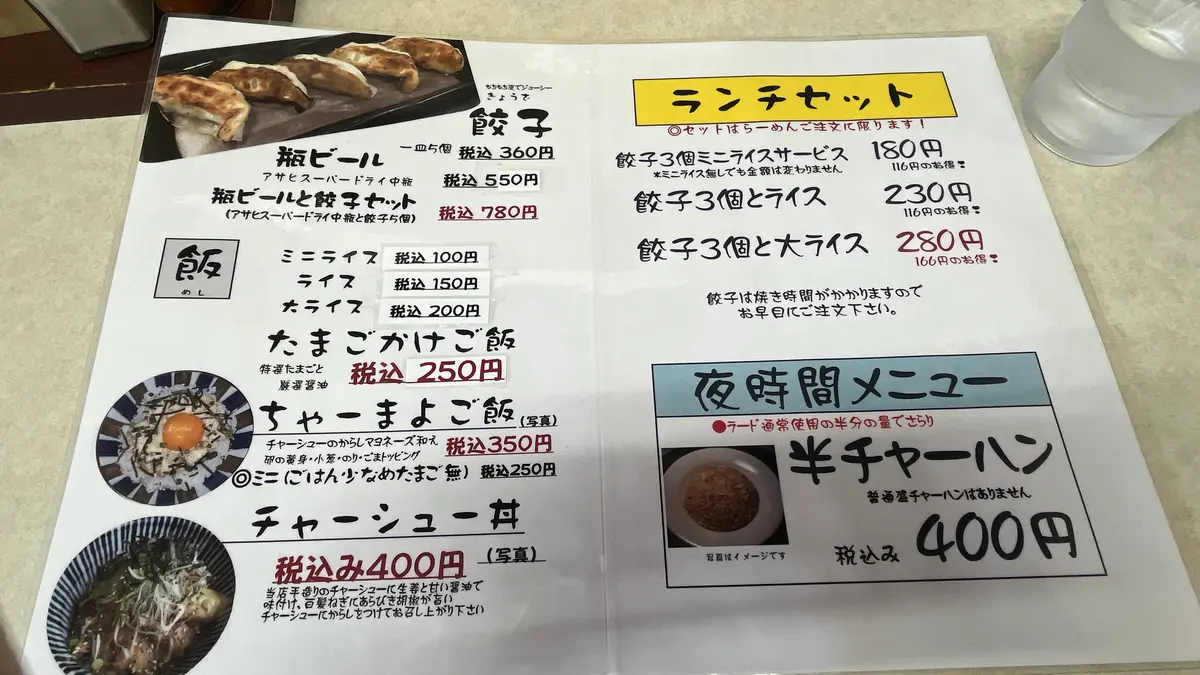 もちもち皮でジューシー
きょうざ
餃子
一皿5個 税込 360円
瓶ビール
アサヒスーパードライ中瓶 税込 550円
瓶ビールと餃子セット
(アサヒスーパードライ中瓶と餃子5個) 税込 780円
飯
めし
ミニライス 税込 100円
ライス 税込 150円
大ライス 税込 200円
たまごかけご飯
特選たまごと
厳選醤油
税込 250円
ちゃーまよご飯 (写真)
チャーシューのからしマヨネーズ和え 税込350円
卵の黄身・小葱・のり・ごまトッピング
◎ミニ(ごはん少なめたまご無) 税込250円
チャーシュー丼
税込み400円 (写真)
当店手造りのチャーシューに生姜と甘い醤油で
味付け、白髪ねぎにあらびき胡椒が旨い
チャーシューにからしをつけてお召し上がり下さい
ランチセット
◎セットはらーめんご注文に限ります!
餃子3個ミニライスサービス 180円
*ミニライス無しでも金額は変わりません 116円のお得!
餃子3個とライス 230円
116円のお得!
餃子3個と大ライス 280円
166円のお得!
餃子は焼き時間がかかりますので
お早目にご注文下さい。
夜時間メニュー
●ラード通常使用の半分の量でさらり
半チャーハン
普通盛チャーハンはありません
写真はイメージです
税込み 400円